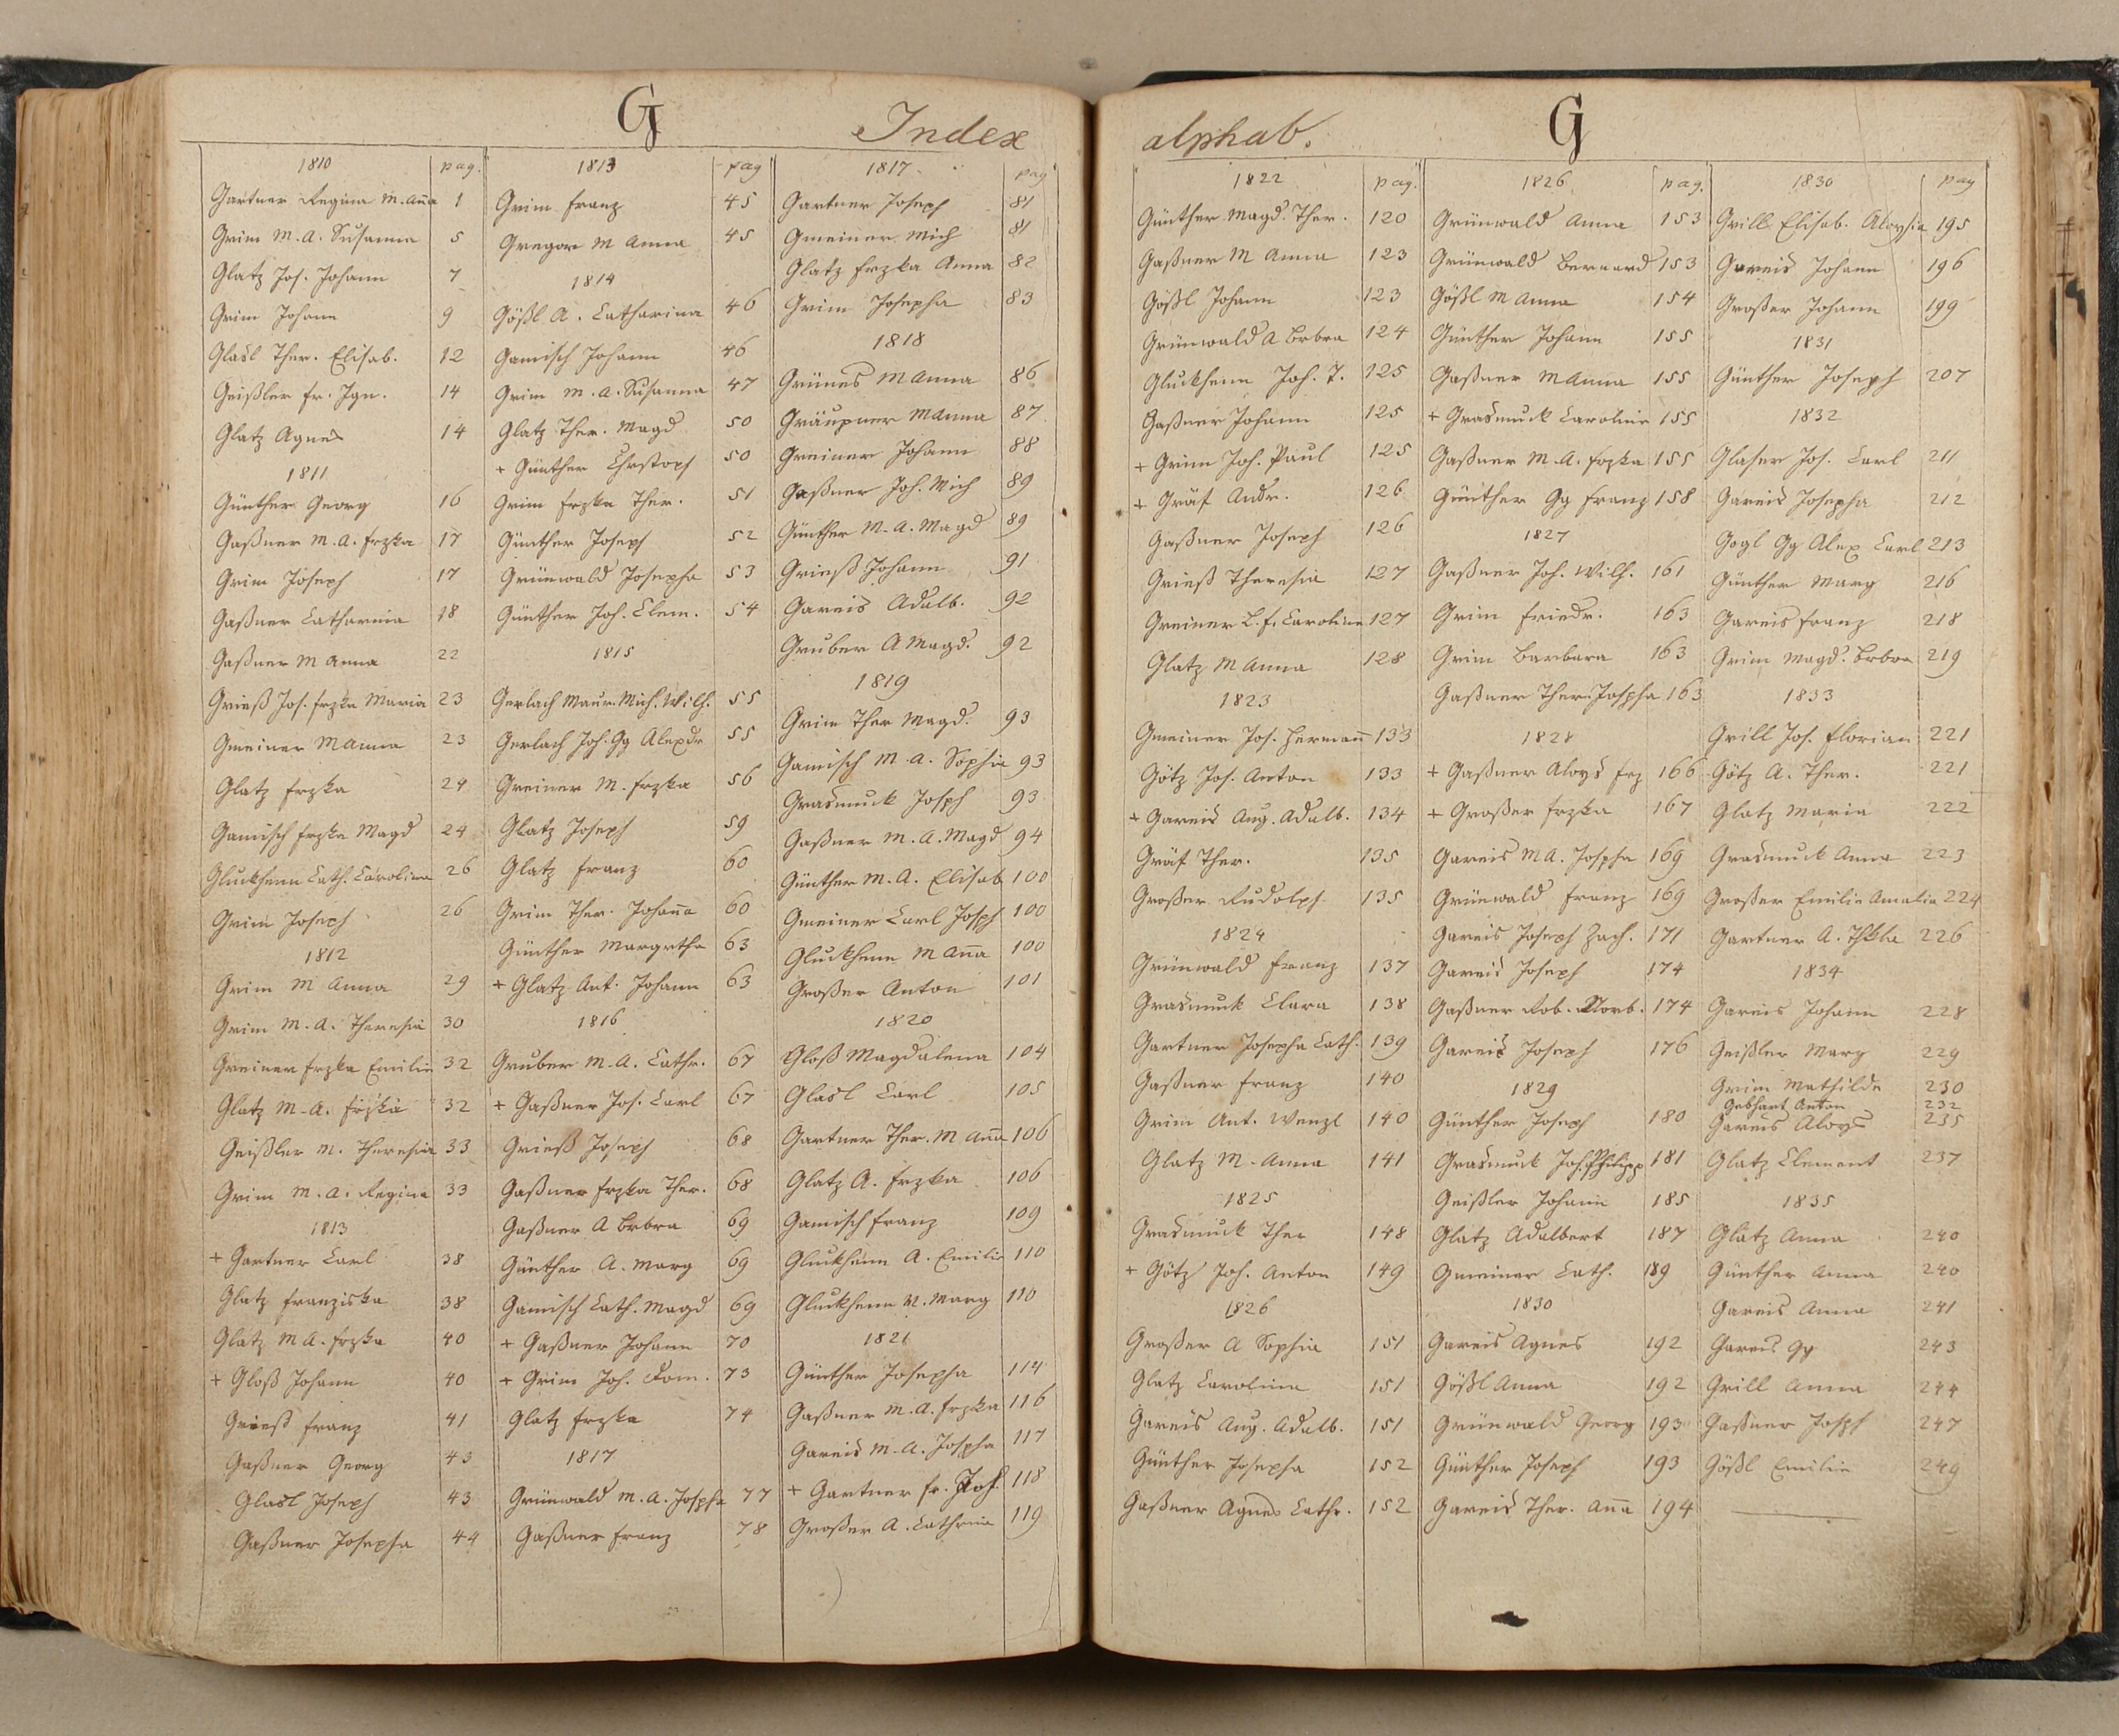 G
Index
1810 pag.
Gartner Regina M. Aña 1
Grim M. A. Susanna 5
Glatz Jos. Johann 7
Grim Johann 9
Glasl Ther. Elisab. 12
Geißler Fr. Ign. 14
Glatz Agnes 14
1811
Günther Georg 16
Gaßner M. A. Frzka 17
Grim Joseph 17
Gaßner Catharina 18
Gaßner M Anna 22
Grieß Jos. Frzka Maria 23
Gmeiner M Anna 23
Glatz Frzka 24
Gamisch Frzka Magd 24
Gluckhenn Cath. Carolina 26
Grim Joseph 26
1812
Grim M Anna 29
Grim M. A. Theresia 30
Greiner Frzka Emilie 32
Glatz M. A. Frzka 32
Geißler M. Theresia 33
Grim M. A. Regina 33
1813
+ Gartner Carl 38
Glatz Franziska 38
Glatz M A. Frzka 40
+ Gloß Johann 40
Grieß Franz 41
Gaßner Georg 43
Glasl Joseph 43
Gaßner Josepha 44
1813 pag
Grim Franz 45
Gregor M Anna 45
1814
Gößl A. Catharina 46
Gamisch Johann 46
Grim M. A. Susanna 47
Glatz Ther. Magd 50
+ Günther Chrstoph 50
Grim Frzka Ther. 51
Günther Joseph 52
Grünwald Josepha 53
Günther Joh. Clem. 54
1815
Gerlach Maur. Mich. Wilh. 55
Gerlach Joh. Gg Alexdr 55
Greiner M. Frzka 56
Glatz Joseph 59
Glatz Franz 60
Grim Ther. Johaña 60
Günther Margrtha 63
+ Glatz Ant. Johann 63
1816
Gruber M. A. Cathr. 67
+ Gaßner Jos. Carl 67
Grieß Joseph 68
Gaßner Frzka Ther. 68
Gaßner A Brbra 69
Günther A. Marg 69
Gamisch Cath. Magd 69
+ Gaßner Johann 70
+ Grim Joh. Dom. 73
Glatz Frzka 74
1817
Grünwald M. A. Jospha 77
Gaßner Franz 78
1817 pag
Gartner Joseph 81
Gmeiner Mich 81
Glatz Frzka Anna 82
Grim Josepha 83
1818
Grünes M Anna 86
Gräupner M Anna 87
Greiner Johann 88
Gaßner Joh. Mich 89
Günther M. A. Magd 89
Grieß Johann 91
Gareis Adalb. 92
Gruber A Magd. 92
1819
Grim Ther Magd. 93
Gamisch M. A. Sophia 93
Grasmuck Josph 93
Gaßner M. A. Magd 94
Günther M. A. Elisab 100
Gmeiner Carl Josph 100
Gluckhenn M Aña 100
Großer Anton 101
1820
Gloß Magdalena 104
Glasl Carl 105
Gartner Ther. M Aña 106
Glatz A. Frzka 106
Gamisch Franz 109
Gluckhenn A. Emilie 110
Gluckhenn V. Marg 110
1821
Günther Josepha 114
Gaßner M. A. Frzka 116
Gareis M. A. Jospha 117
+ Gartner Fr. Jos. 118
Großer A. Cathrina 119
alphab.
G
1822 pag.
Günther Magd. Ther. 120
Gaßner M Anna 123
Gößl Johann 123
Grünwald A Brbra 124
Gluckhenn Joh. T. 125
Gaßner Johann 125
+ Grim Joh. Paul 125
+ Gräf Andr. 126
Gaßner Joseph 126
Grieß Theresia 127
Greiner L. F. Caroline 127
Glatz M Anna 128
1823
Gmeiner Jos. Hermañ 133
Götz Jos. Anton 133
+ Gareis Aug. Adalb. 134
Gräf Ther. 135
Großer Rudolph 135
1824
Grünwald Franz 137
Grasmuck Clara 138
Gartner Josepha Cath. 139
Gaßner Franz 140
Grim Ant. Wenzl 140
Glatz M. Anna 141
1825
Grasmuck Ther 148
+ Götz Joh. Anton 149
1826
Großer A Sophia 151
Glatz Carolina 151
Gareis Aug. Adalb. 151
Günther Josepha 152
Gaßner Agnes Cathr. 152
1826 pag.
Grünwald Anna 153
Grünwald Bernard 153
Gößl M Anna 154
Günther Johann 155
Gaßner M Anna 155
+ Grasmuck Caroline 155
Gaßner M. A. Frzka 155
Günther Gg Franz 158
1827
Gaßner Joh. Wilh. 161
Grim Friedr. 163
Grim Barbara 163
Gaßner Ther. Jospha 163
1828
+ Gaßner Aloys Frz 166
+ Großer Frzka 167
Gareis M A. Jospha 169
Grünwald Franz 169
Gareis Joseph Zach. 171
Gareis Joseph 174
Gaßner Rob. Norb. 174
Gareis Joseph 176
1829
Günther Joseph 180
Grasmuck Jos. Philipp 181
Geißler Johann 185
Glatz Adalbert 187
Gmeiner Cath. 189
1830
Gareis Agnes 192
Gößl Anna 192
Grünwald Georg 193
Günther Joseph 193
Gareis Ther. Aña 194
1830 pag
Grill Elisab. Aloysia 195
Gareis Johann 196
Großer Johann 199
1831
Günther Joseph 207
1832
Glaser Jos. Carl 211
Gareis Josepha 212
Gogl Gg Alex Carl 213
Günther Marg 216
Gareis Franz 218
Grim Magd. Brbra 219
1833
Grill Jos. Florian 221
Götz A. Ther. 221
Glatz Maria 222
Grasmuck Anna 223
Großer Emilie Amalie 224
Gartner A. Thkla 226
1834
Gareis Johann 228
Geißler Marg 229
Grim Mathilde 230
Gebhart Anton 232
Gareis Aloys 235
Glatz Clement 237
1835
Glatz Anna 240
Günther Anna 240
Gareis Anna 241
Gareis Gg 243
Grill Anna 244
Gaßner Josph 247
Gößl Emilie 249